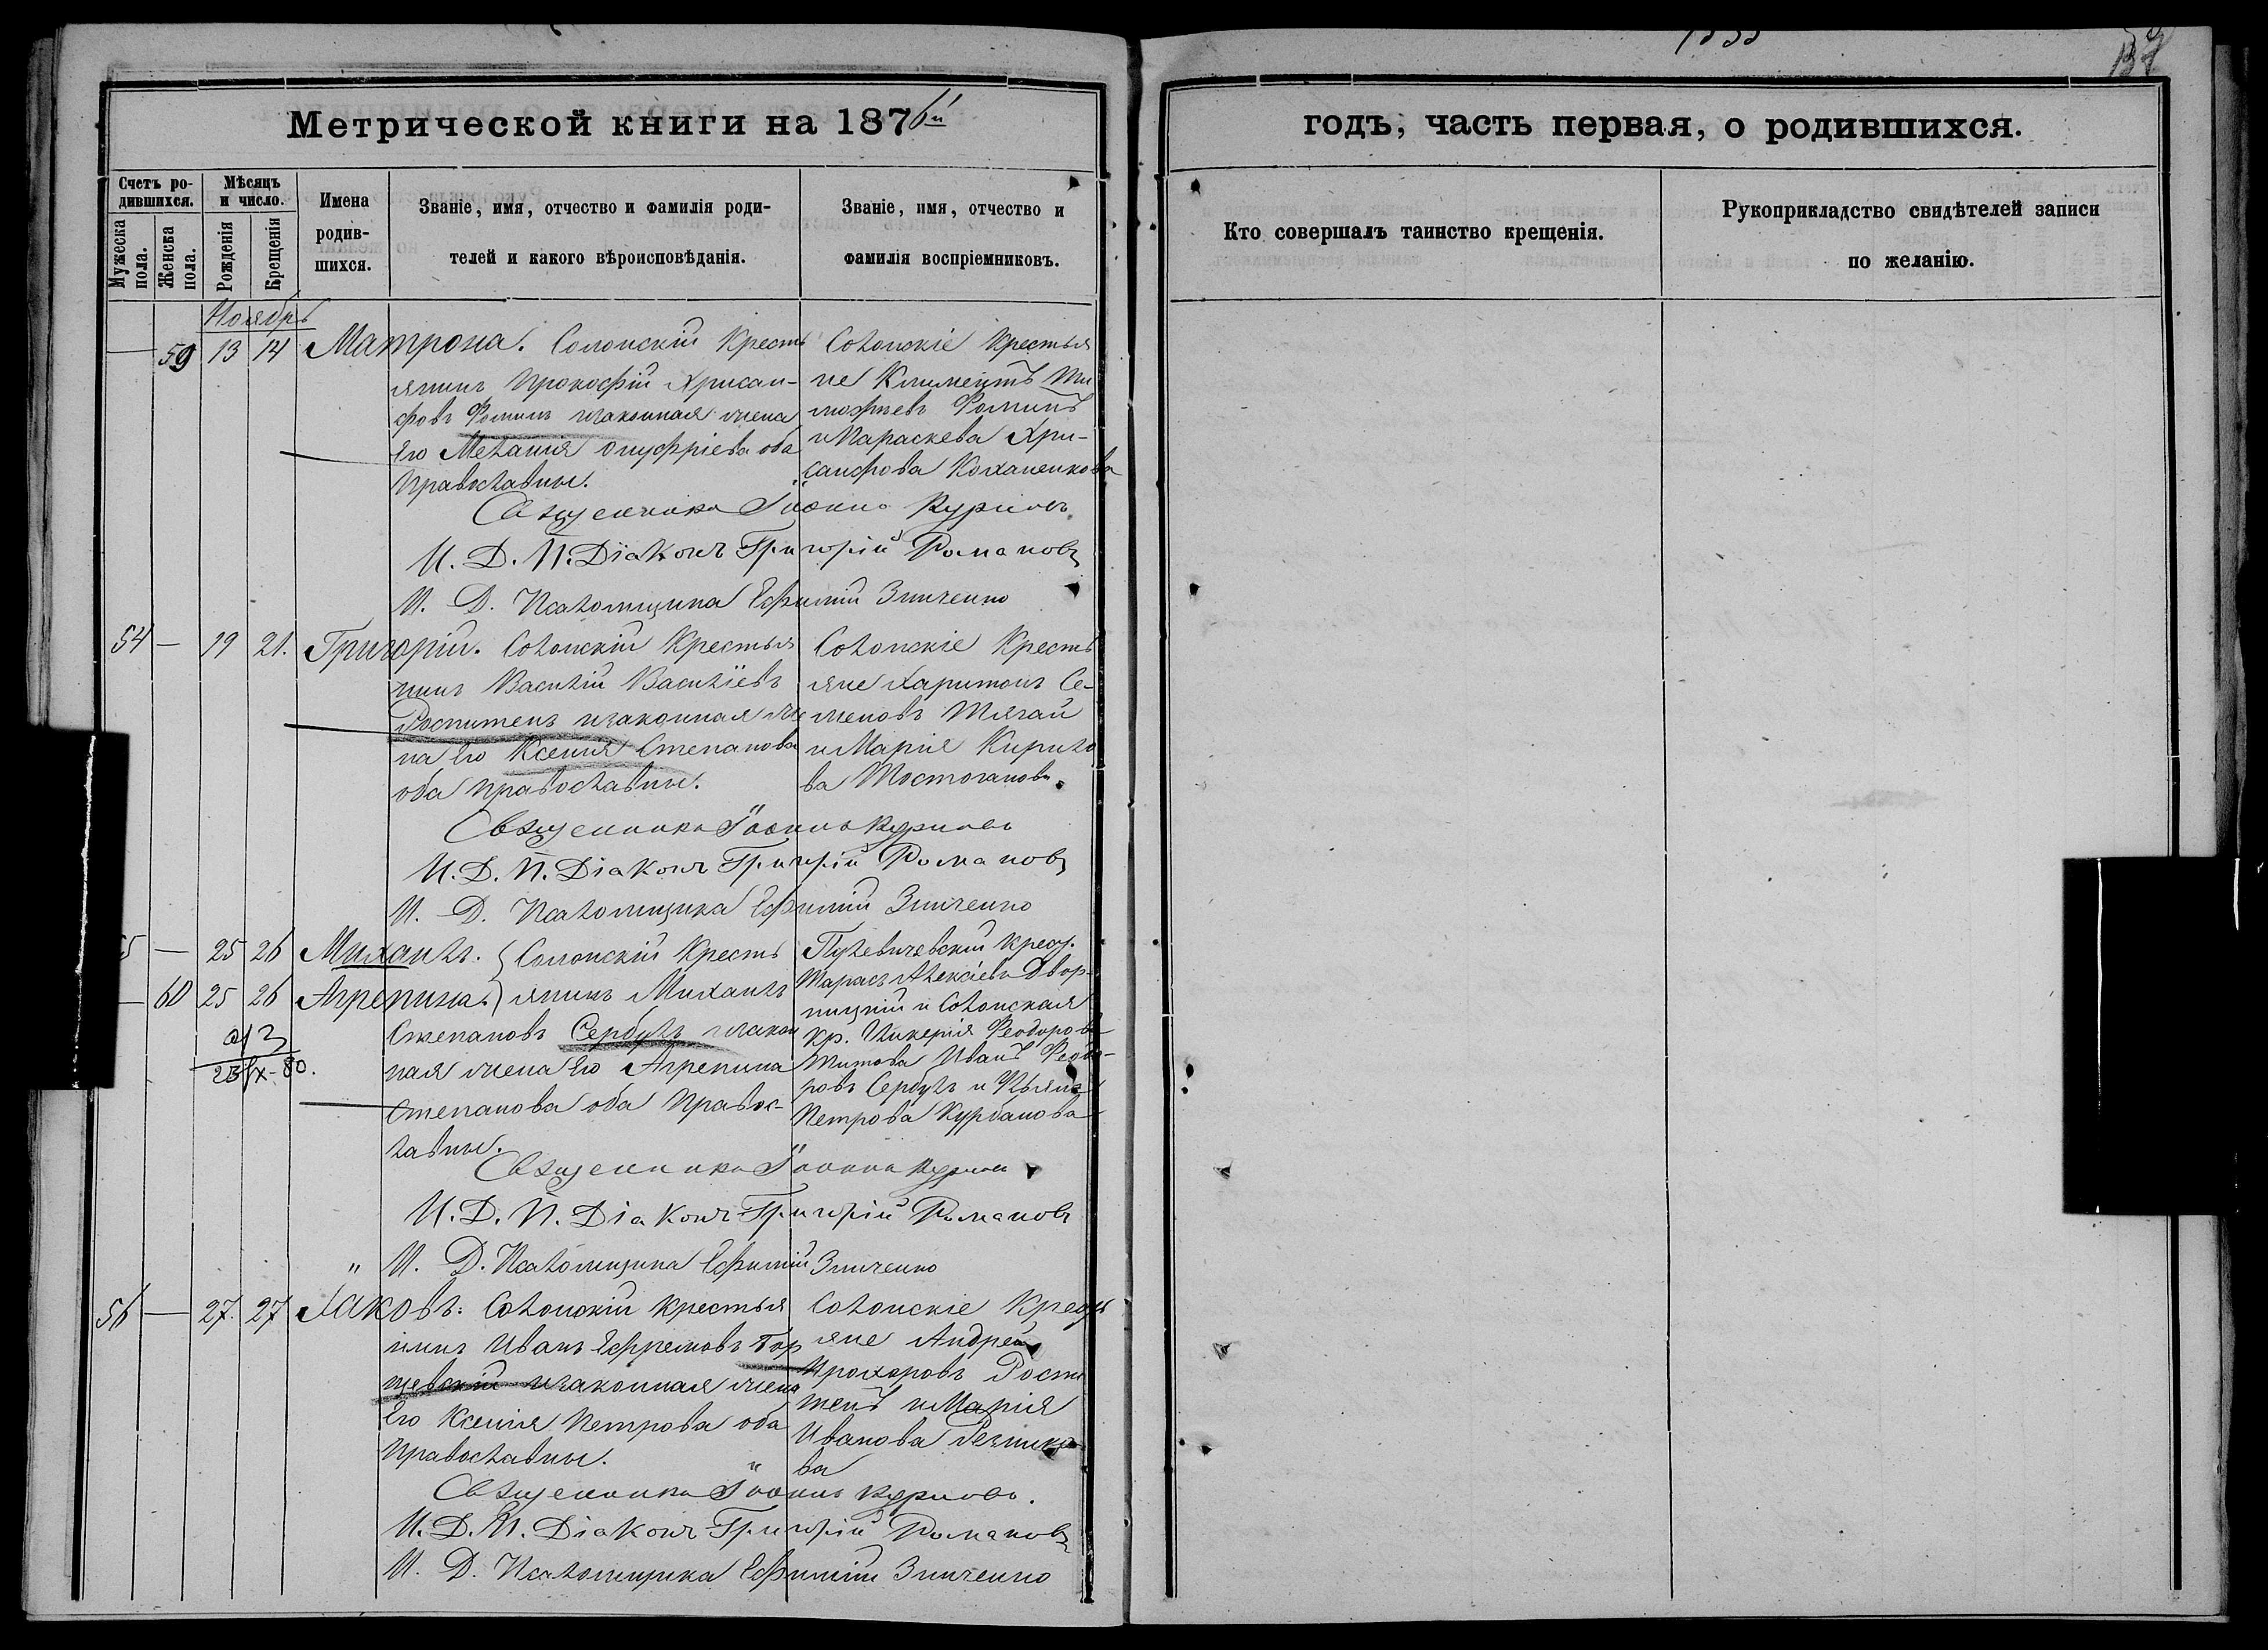 Метрической книги на 1876й
годъ, часть первая, о родившихся.
Счетъ ро-
дившихся.
Мужеска пола.
Женска пола.
Мѣсяцъ
и число.
Рожденія
Крещенія
Имена
родив-
шихся.
Званіе, имя, отчество и фамилія роди-
телей и какого вѣроисповѣданія.
Званіе, имя, отчество и
фамилія воспріемниковъ.
Кто совершалъ таинство крещенія.
Рукоприкладство свидѣтелей записи
по желанію.
Ноябрь
— 59 13 14 Матрона. Солонскій Кресть
янинъ Прокофій Хрисан-
фовъ Фоминъ изаконная жена
его Меланія Онуфріева оба
православные.
Солонскіе Крестья
не Климентъ Ти
мофеевъ Фоминъ
и Параскева Хри-
санфова Коханенкова
Священникъ Іоаннъ Куриловъ
И. Д. П. Діаконъ Григорій Романовъ
И. Д. Псаломщика Ефимій Зинченко
54 — 19 21. Григорій. Солонскій Крестья
нинъ Василій Василіевъ
Роспитенъ изаконная же
на его Ксенія Степанова
оба православные.
Солонскіе Кресть
яне Харитонъ Се-
меновъ Тягай
и Марія Кирило
ва
Священникъ Іоаннъ Куриловъ
И. Д. П. Діаконъ Григорій Романовъ
И. Д. Псаломщика Ефимій Зинченко
55 — 25 26 Михаилъ. Солонскій Кресть
— 60 25 26 Агрепина. янинъ Михаилъ
Степановъ Сербулъ изакон
ная жена его Агрепина
Степанова оба правос-
лавные.
Тарасъ Алексіевъ Двор-
ницкій и Солонская
кр. Гликерія Феодорова
Титова Иванъ Феодо-
ровъ Сербулъ и
Петрова Курбанова
Священникъ Іоаннъ Курилов
И. Д. П. Діаконъ Григорій Романовъ
И. Д. Псаломщика Ефимій Зинченко
56 — 27. 27 Іаковъ: Солонскій крестья
нинъ Иванъ Ефремовъ Гор
щевскій изаконная жена
его Ксенія Петрова оба
православные.
Солонскіе Крест
яне Андрей
Прохоровъ Роспи
тенъ и Марія
Иванова Резнико
ва
Священникъ Іоаннъ Куриловъ.
И. Д. П. Діаконъ Григорій Романовъ
И. Д. Псаломщика Ефимій Зинченко